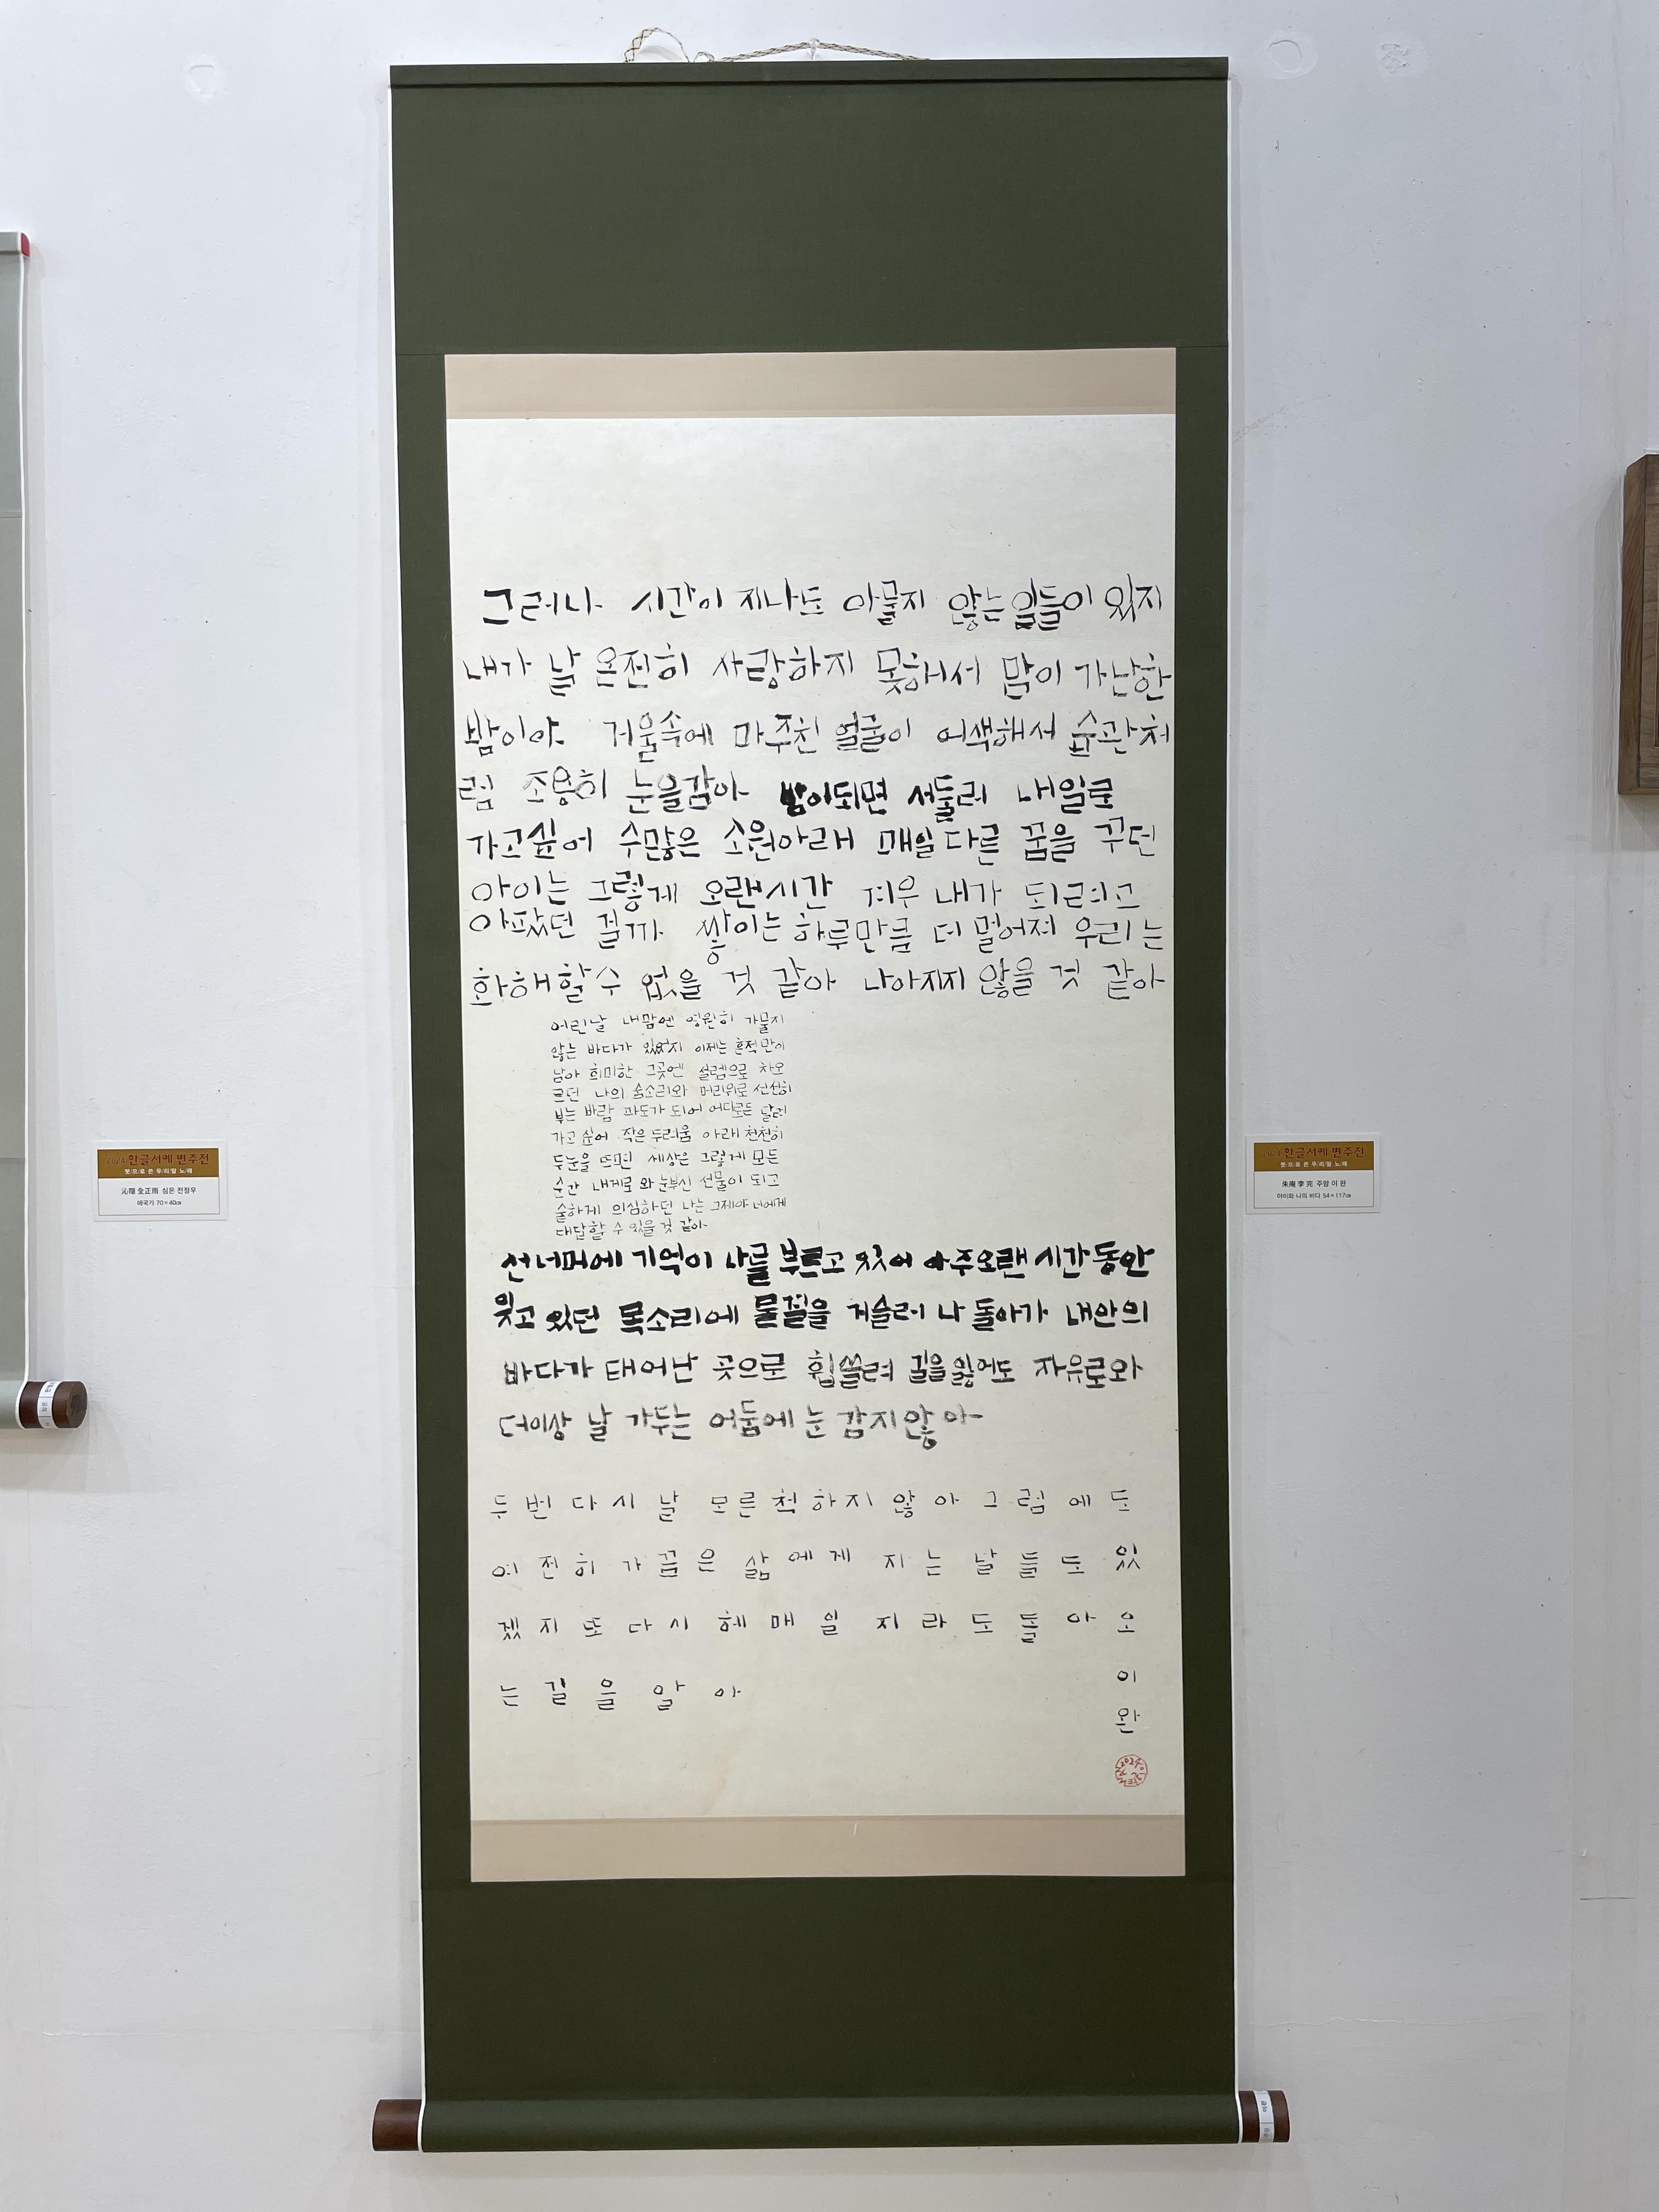 그러나 시간이 지나도 아물지 않는 일들이 있지
내가 날 온전히 사랑하지 못해서 맘이 가난한
밤이야 거울속에 마주친 얼굴이 어색해서 습관처
럼 조용히 눈을감아 밤이되면 서둘러 내일로
가고싶어 수많은 소원아래 매일 다른 꿈을 꾸던
아이는 그렇게 오랜시간 겨우 내가 되려고
아팠던 걸까 쌓이는 하루만큼 더 멀어져 우리는
화해할 수 없을 것 같아 나아지지 않을 것 같아
어린날 내맘엔 영원히 가물지
않는 바다가 있었지 이제는 흔적만이
남아 희미한 그곳엔 설렘으로 차오
르던 나의 숨소리와 머리위로 선선히
부는 바람 파도가 되어 어디로든 달려
가고 싶어 작은 두려움 아래 천천히
두눈을 뜨면 세상은 그렇게 모든
순간 내게로 와 눈부신 선물이 되고
숱하게 의심하던 나는 그제야 너에게
대답할 수 있을 것 같아
선너머에 기억이 나를 부르고 있어 아주오랜 시간 동안
잊고 있던 목소리에 물결을 거슬러 나 돌아가 내안의
바다가 태어난 곳으로 휩쓸려 길을 잃어도 자유로와
더이상 날 가두는 어둠에 눈 감지 않아
두 번 다시 날 모른척하지 않아 그럼에도
여전히 가끔은 삶에게 지는 날들도 있
겠지 또 다시 헤매일지라도 돌아오
는 길을 알아
이
완
2024 한글서예 변주전
붓/으/로 쓴 우/리/말 노/래
沁隱 全正雨 심은 전정우
애국가 70×40㎝
2024 한글서예 변주전
붓/으/로 쓴 우/리/말 노/래
朱庵 李 完 주암 이 완
아이와 나의 바다 54×117㎝